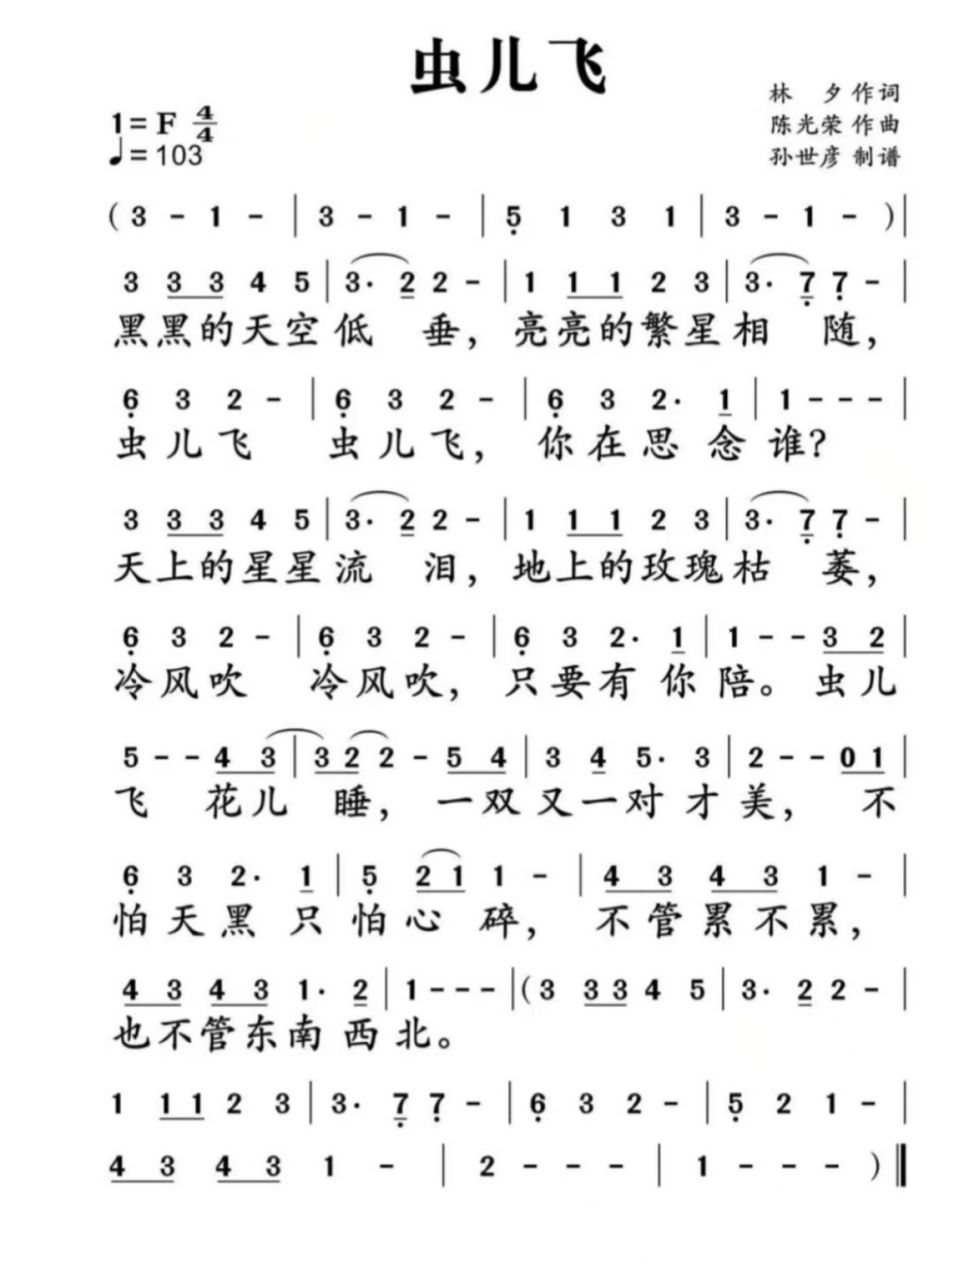 虫儿飞
林 夕 作词
1=F 4/4
陈光荣 作曲
♩=103
孙世彦 制谱
( 3 - 1 - | 3 - 1 - | 5̣ 1 3 1 | 3 - 1 - ) |
3 3 3 4 5 | 3· 2 2 - | 1 1 1 2 3 | 3· 7̣ 7̣ - |
黑黑的天空低 垂，亮亮的繁星相 随，
6̣ 3 2 - | 6̣ 3 2 - | 6̣ 3 2· 1 | 1 - - - |
虫儿飞 虫儿飞，你在思念谁？
3 3 3 4 5 | 3· 2 2 - | 1 1 1 2 3 | 3· 7̣ 7̣ - |
天上的星星流 泪，地上的玫瑰枯 萎，
6̣ 3 2 - | 6̣ 3 2 - | 6̣ 3 2· 1 | 1 - - 3 2 |
冷风吹 冷风吹，只要有你陪。虫儿
5 - - 4 3 | 3 2 2 - 5 4 | 3 4 5· 3 | 2 - - 0 1 |
飞 花儿 睡，一双又一对才美，不
6̣ 3 2· 1 | 5̣ 2 1 1 - | 4 3 4 3 1 - |
怕天黑只怕心碎，不管累不累，
4 3 4 3 1· 2 | 1 - - - | ( 3 3 3 4 5 | 3· 2 2 - |
也不管东南西北。
1 1 1 2 3 | 3· 7̣ 7̣ - | 6̣ 3 2 - | 5̣ 2 1 - |
4 3 4 3 1 - | 2 - - - | 1 - - - ) ‖